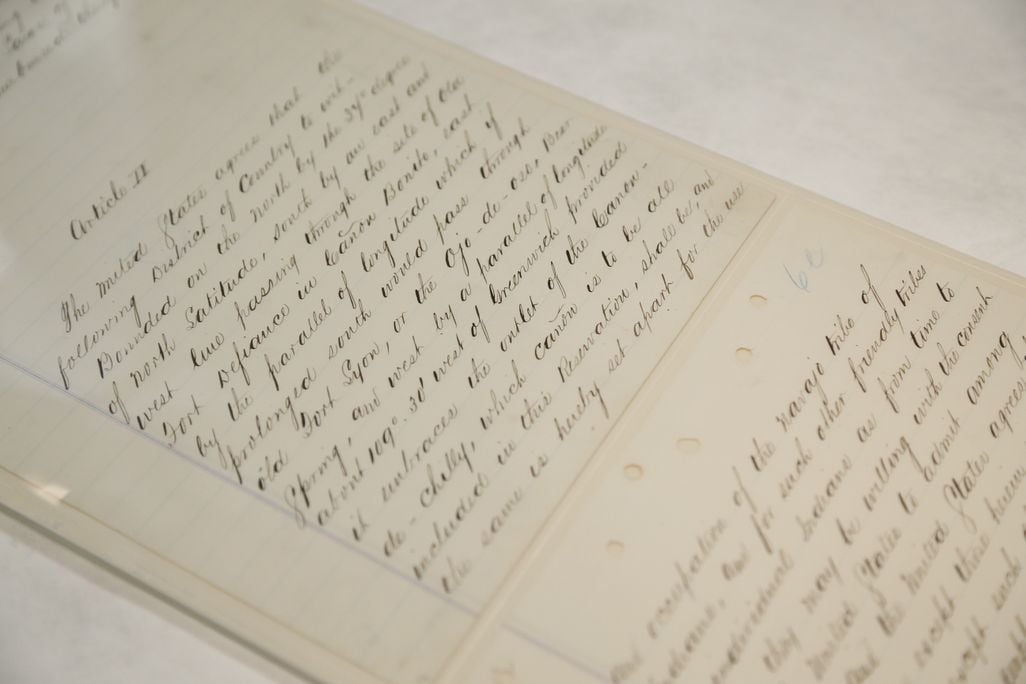 Article II
The United States agrees that the
following District of Country to wit-
Bounded on the North by the 37° degree
of North Latitude, South by an east and
west line passing through the site of Old
Fort Defiance in Cañon Bonito, east
by the parallel of longitude which if
prolonged south would pass through
old Fort Lyon, or the Ojo-de-oso, Bear
Spring, and west by a parallel of longitude
about 109°. 30' west of Greenwich provided
it embraces the outlet of the Canon-
de-Chilly, which cañon is to be all
included in this Reservation, shall be, and
the same is hereby set apart for the use
and occupation of the navajo tribe of
and for such other friendly tribes
individual Indians as from time to
they may be willing with the consent
United States to admit among
and the United States agrees
except those herein
except such